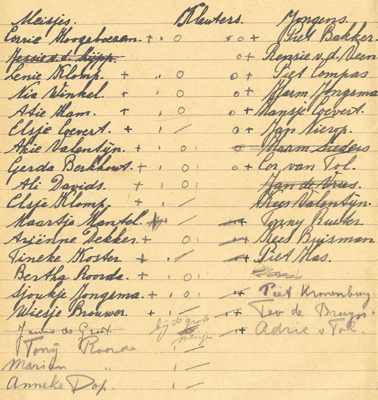 Meisjes. Kleuters. Jongens.
Corrie Hoogeboezem + o o + Piet Bakker.
Jessie v.d. o + Rensie v.d. Veen.
Ienie Klomp. + o o + Piet Compas
Nia Winkel. + o o + Harm Jongsma
Atie Ham. + o o + Hansje Coevert.
Elsje Coevert. + / o + Jan Nierop.
Atie Valentijn. + o o + Harm Sleders
Gerda Berkhout. + o o + Cor van Tol.
Ali Davids. + o Jan de Vries.
Elsje Klomp. + / Kees Valentijn.
Maartje Mantel. / + Tonny Ruiter
Ariënne Dekker. + o + Kees Buisman
Tineke Koster + / + Piet Mas.
Bertha Roorda. + o
Sjoukje Jongsma + o + Piet Kronenburg
Wiesje Brouwer. + / + Teo de Bruyn.
Jannie de Groot bij de grote meisjes + Adrie v Tol.
Tonij Roorda /
Marian " /
Anneke Dop. /